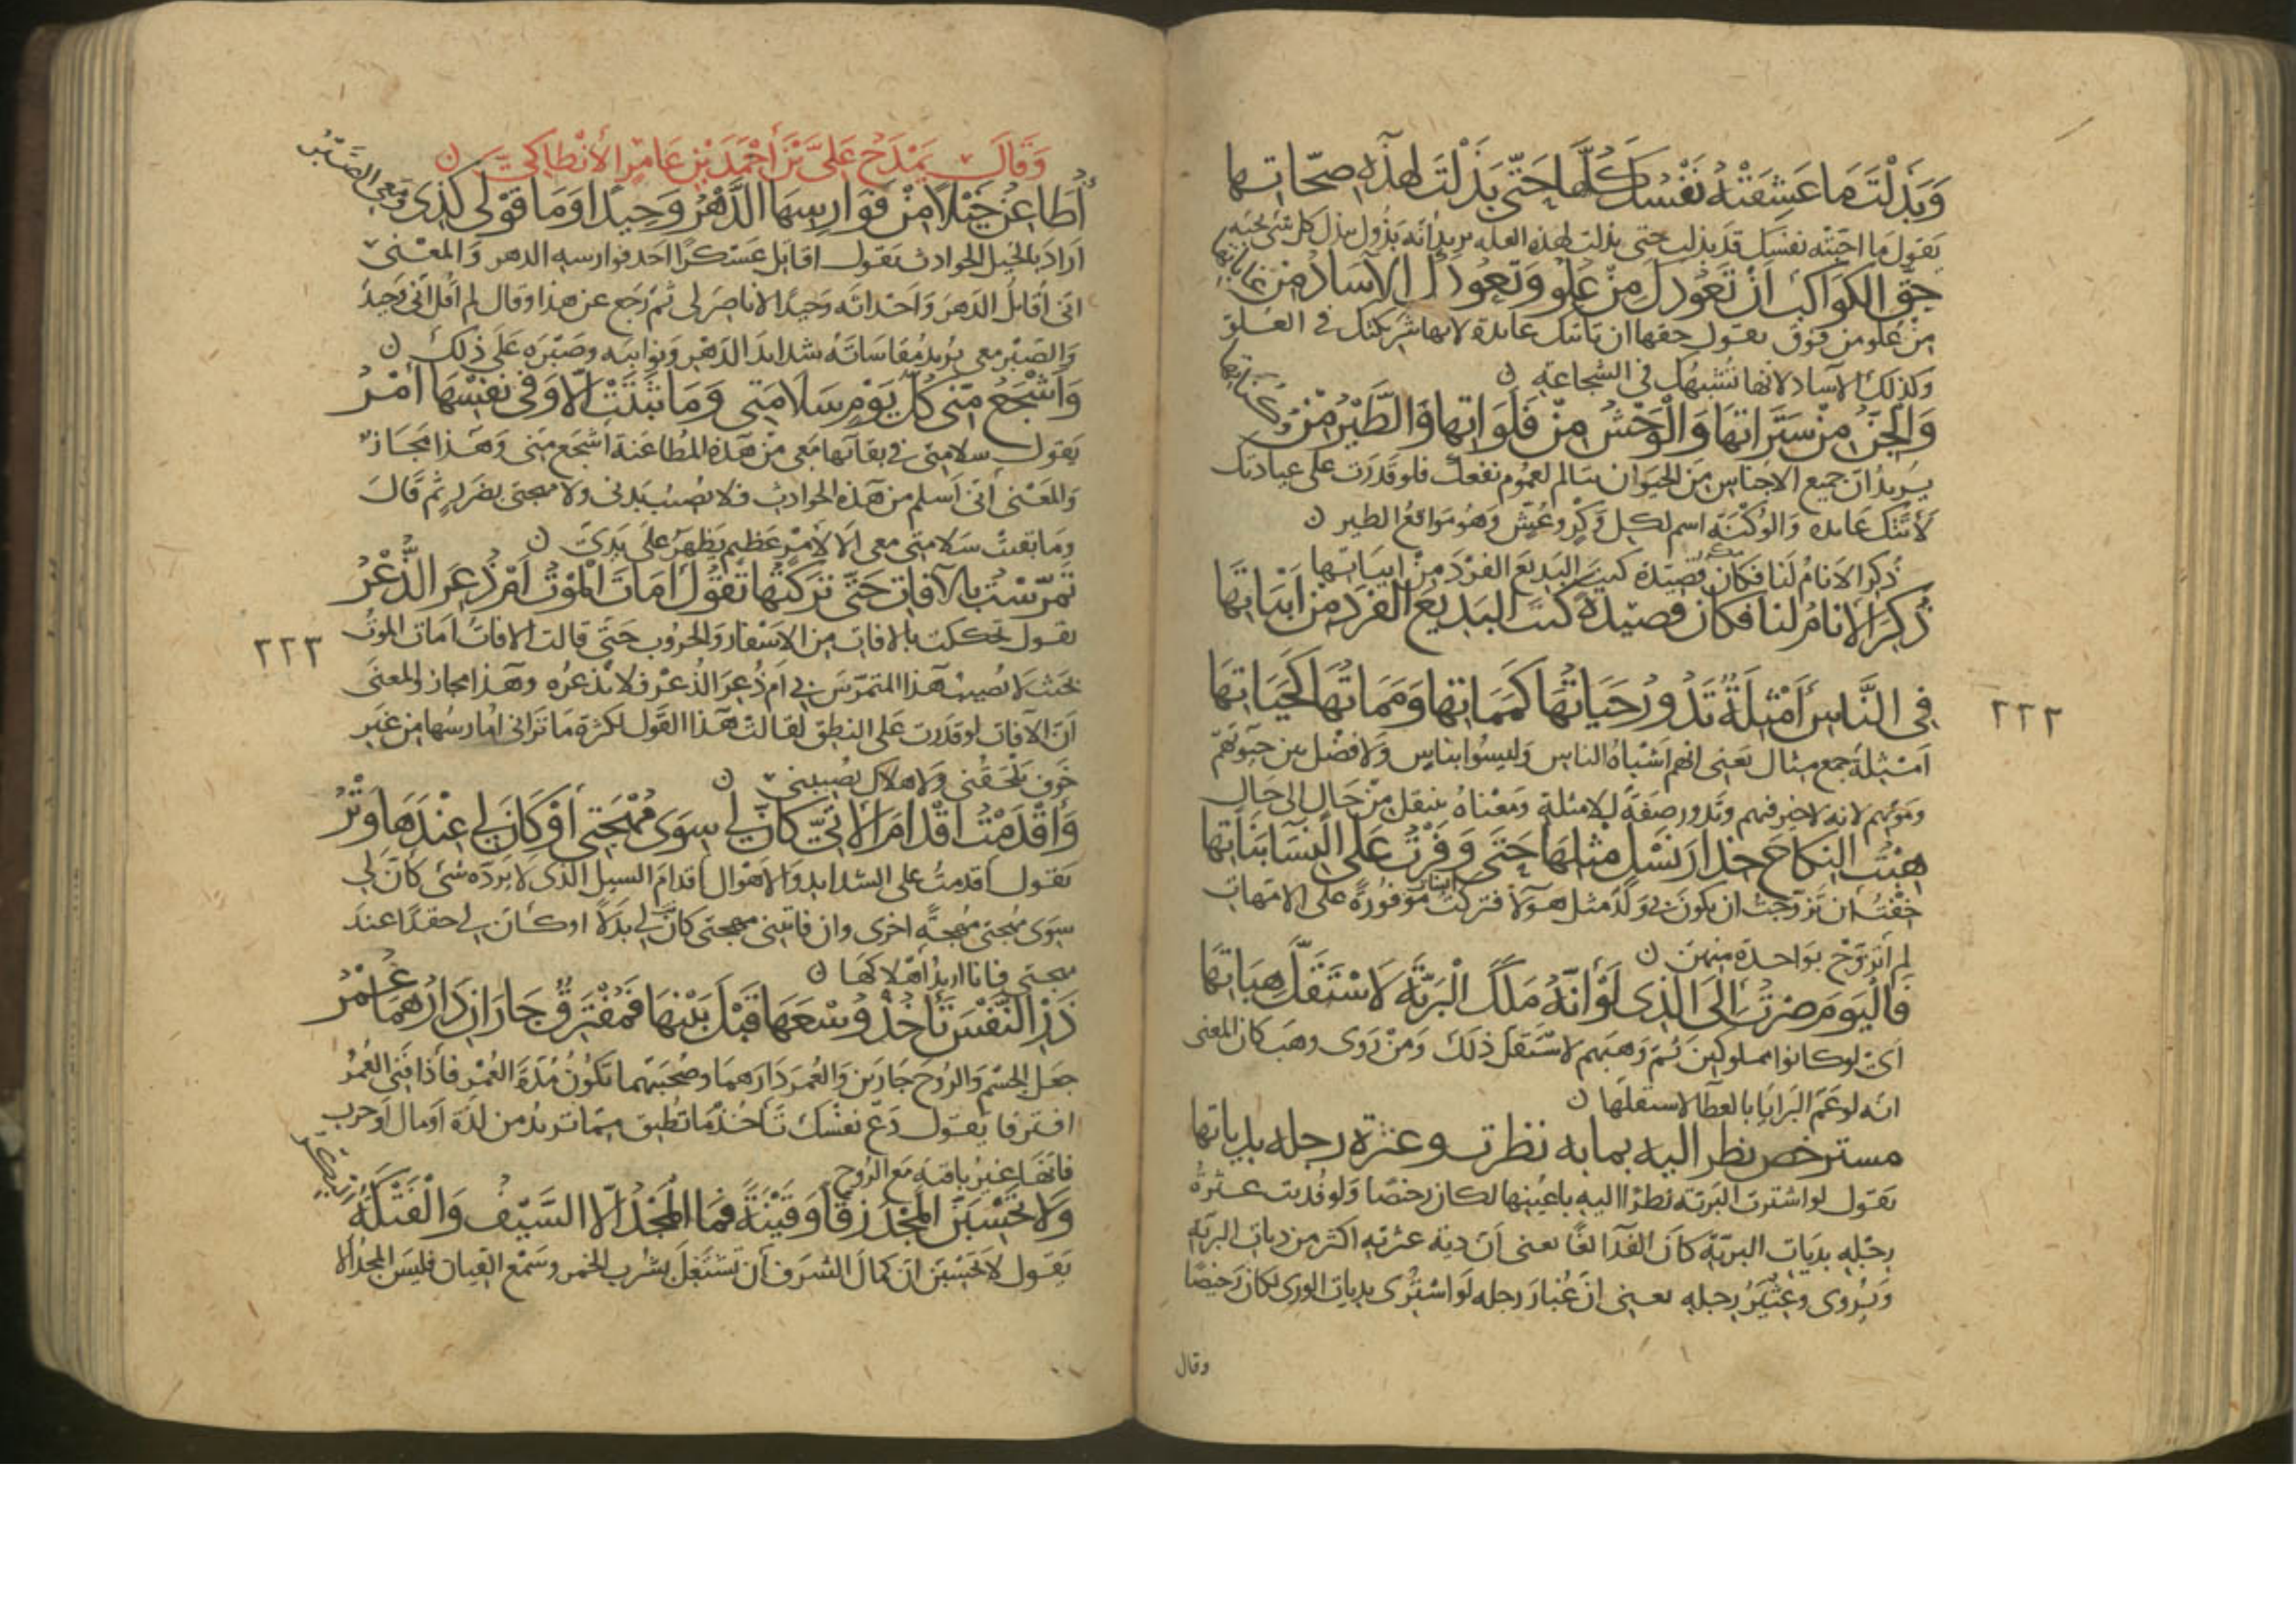 وَبَذَلْتَ مَا عَشِقَتْهُ نَفْسُكَ كُلَّهَا حَتَّى بَذَلْتَ لِهَذِهِ صِحَّاتِهَا
يقول ما احبته نفسك قد بذلت حتى بذلت لهذه العلة يريد انه بذول يبذل كل شيء يحبه
حَقُّ الكَوَاكِبِ اَنْ تَعُودَكَ مِنْ عَلُو وَتَعُودَكَ الآسَادُ مِنْ غَابَاتِهَا
مِن عَلُو من فوق يقول حقها ان تاتيك عائدة لانها شريكتك في العلو
وكذلك الآساد لانها تُشْبِهُك في الشجاعة ن
وَالْجِنُّ مِنْ سَتَرَاتِهَا وَالْوَحْشُ مِنْ فَلَوَاتِهَا وَالطَّيْرُ مِنْ وُكُنَاتِهَا
يريد ان جميع الاجناس من الحيوان تتالم لعموم نفعك فلو قدرت على عيادتك
لأتتك عائده وَالوُكْنَةُ اسم لكل وَكْرٍ وعُشٍّ وَهُو مَوَاقعُ الطير ن
ذُكِرَ الاَنامُ لَنَا فكان قصيدة كنت البَديعَ الفَرْدَ مِنْ ابياتها
ذُكِرَ الاَنَامُ لَنَا فَكَانَ قَصِيْدَةً كُنتَ البَدِيعَ الفَرْدَ مِنْ اَبْيَاتِهَا
فِي النَّاسِ أَمْثِلَةٌ تَدُورُ حَيَاتُهَا كَمَمَاتِهَا وَمَمَاتُهَا كَحَيَاتِهَا
اَمْثِلَةٌ جمع مثال يَعْنِي انهم اشْبَاهُ الناس وليسُوا بناسٍ وَلا فضْل بين حيوتهم
وموتهم لانه لاخير فيهم وتدور صفة للامثلة ومعناهُ ينتقل مِنْ حَال الى حَال
هِبْتُ النِّكَاحَ حِذَارَ نَسْلٍ مِثْلِهَا حَتَّى وَفَرْتُ عَلَى النِّسَا بَنَاتِهَا
خِفْتُ ان تزوجتُ ان يكون لي ولد مثل هولا فتركت البنات مَوْفُورَةً على الامهات
لم أتزوج بواحدة منهن ن
فَالْيَوْمَ صِرْتُ اِلَى الَّذِى لَوْ اَنَّهُ مَلَكَ الْبَرِيَّةَ لَاسْتَقَلَّ هِبَاتِهَا
اَىْ لو كانوا مملوكين ثم وهبهم لاستقل ذلك ومن روى وهب كان المعنى
انه لو عم البرايا بالعطا لاستقلها ن
مسترخص نظر اليه بما به نظرت وعثرة رجله بدياتها
يقول لو اشترت البرية نظرا اليه باعينها لكان رخصا ولو فديت عثرة
رجله بديات البرية كان الفدا لفا يعنى ان دية عثرته اكثر من ديات البرية
ويروى وعثير رجله يعنى ان غبار رجله لو اشترى بديات الورى لكان رخيصا
وقال
٢٢٢
وَقَالَ يَمْدَحُ عَلِىَّ بْنَ أَحْمَدَ بْنِ عَامِرٍ الأَنْطاكِيَّ ن
أُطَاعِنُ خَيْلاً مِنْ فَوَارِسِهَا الدَّهْرُ وَحِيدًا وَمَا قَوْلِى كَذَى وَمَعِى الصَّبْرُ
اَرَادَ بالخيل الحوادث يَقول اقابل عَسْكرًا احد فوارسه الدهر وَالمعْنى
انى أقابل الدهر وَاحداثه وَحيدًا لا ناصر لى ثم رجع عن هذا وقال لم أقل انى وحيد
وَالصَّبْر معى يريد مُقاسَاتَهُ شدايد الدهر ونوايبه وصَبْرَه عَلى ذلك ن
وَأَشْجَعُ مِنِّى كُلَّ يَوْمٍ سَلَامَتِى وَمَا ثَبَتَتْ اِلَّا وَفِى نَفْسِهَا أَمْرُ
يَقول سلامتى فى بقائها معى من هذه المطاعنة أشجع منى وَهَذا مجَاز
وَالمعْنى أنى أسلم من هذه الحوادث فلا يصيب بدنى ولا مهجتى بضرر ثم قال
وما بقيت سلامتى معى الا لأمر عظيم يظهر على يدى ن
تَمَرَّسْتُ بِالآفَاتِ حَتَّى تَرَكْتُهَا تَقُولُ أَمَاتَ الْمَوْتُ اَمْ ذُعِرَ الذُّعْرُ
يقول تحككت بالافات من الاسْفار وَالحروب حَتى قالت الافات أمات الموت
بحيث لا يُصيب هذا المتمرس بى ام ذُعِرَ الذُّعْر فلا يذعره وهذا مجاز والمعنى
اَنّ الآفات لو قدرت عَلى النطق لقالت هذا القول لكثرة ما ترانى امارسها من غير
خوف يلحقنى ولا هلاك يُصيبنى ن
وَأَقْدَمْتُ اِقْدَامَ الْأَتِىِّ كَأَنَّ لِى سِوَى مُهْجَتِى أَوْ كَانَ لِى عِنْدَهَا وِتْرُ
يَقول أقدمتُ على الشدايد وَالاهْوال اقدام السيل الذى لا يرده شئ كأن لى
سِوَى مُهجتى مُهجةً اخرى وان فاتتنى مهجتى كان لى بَدلاً او كان لى حقدًا عند
مهجتى فانا اريد اهْلاكها ن
ذَرِ النَّفْسَ تَأْخُذْ وُسْعَهَا قَبْلَ بَيْنِهَا فَمُفْتَرِقٌ جَارَانِ دَارُهُمَا عُمْرُ
جعل الجسْمَ وَالروُح جارَين وَالعُمر دَارَهمَا وصُحْبتهما تكون مُدّة العُمْر فاذا فَنى العُمرُ
افترقا يَقول دَعْ نفسك تاخذ ما تطيق مما تريد من لذة او مال او حرب
فانها غير باقيه مع الروح
وَلَا تَحْسَبَنَّ الْمَجْدَ زِقًّا وَقَيْنَةً فَمَا الْمَجْدُ اِلَّا السَّيْفُ وَالْفَتْكَةُ
يَقول لا تحسبن ان كمالَ الشرف أن تشتغل بشرب الخمر وسَمْع القيان فليس المجد الا
٢٢٣